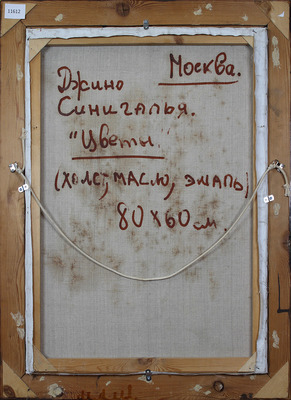 31612
Москва.
Джино
Синигалья.
"Цветы."
(холст, масло, эмаль)
80х60 см.